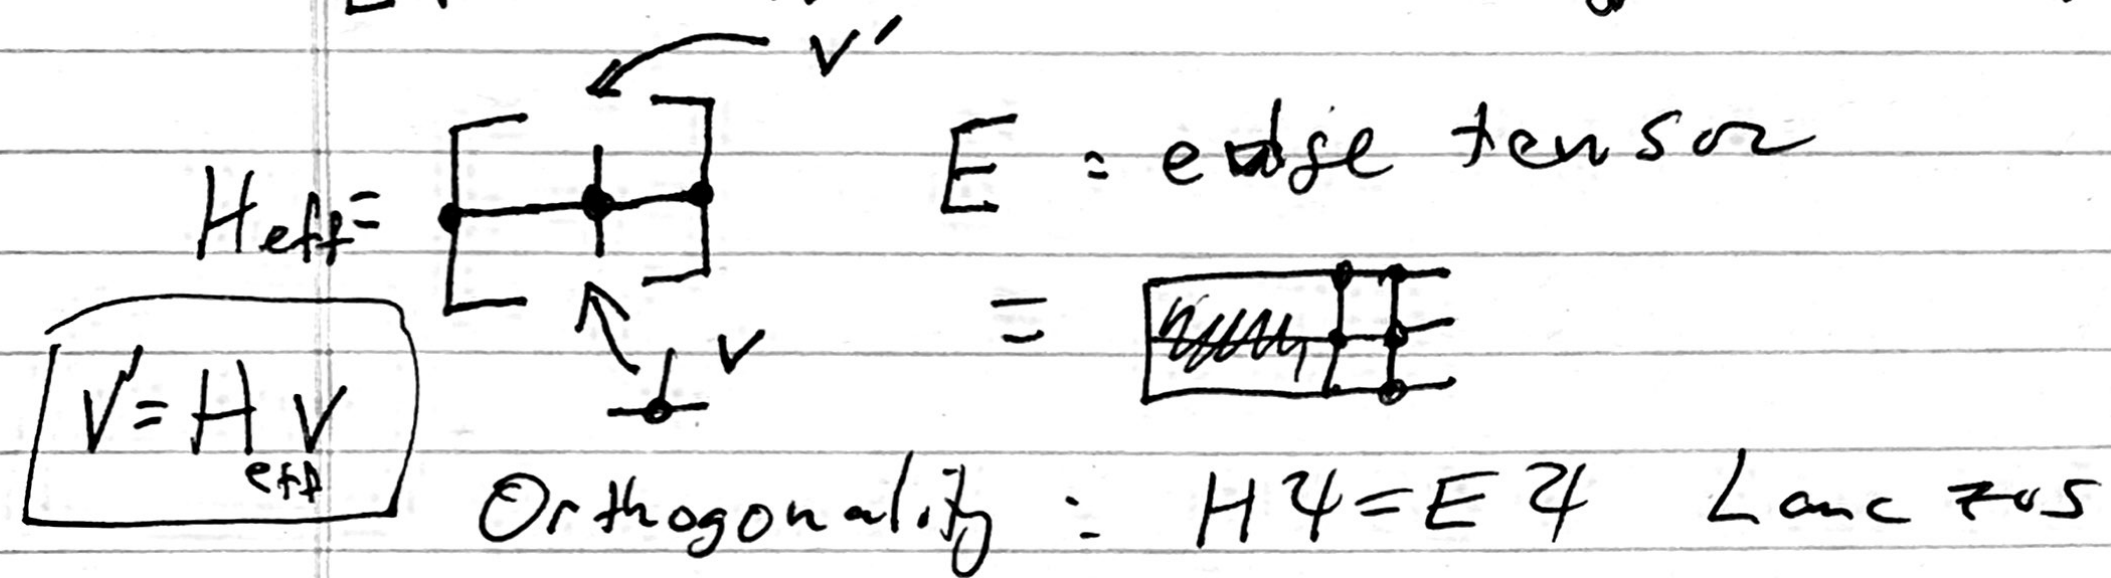 V'
E = edge tensor
Heff =
=
V
V' = Heff V
Orthogonality : HΨ = EΨ Lanczos